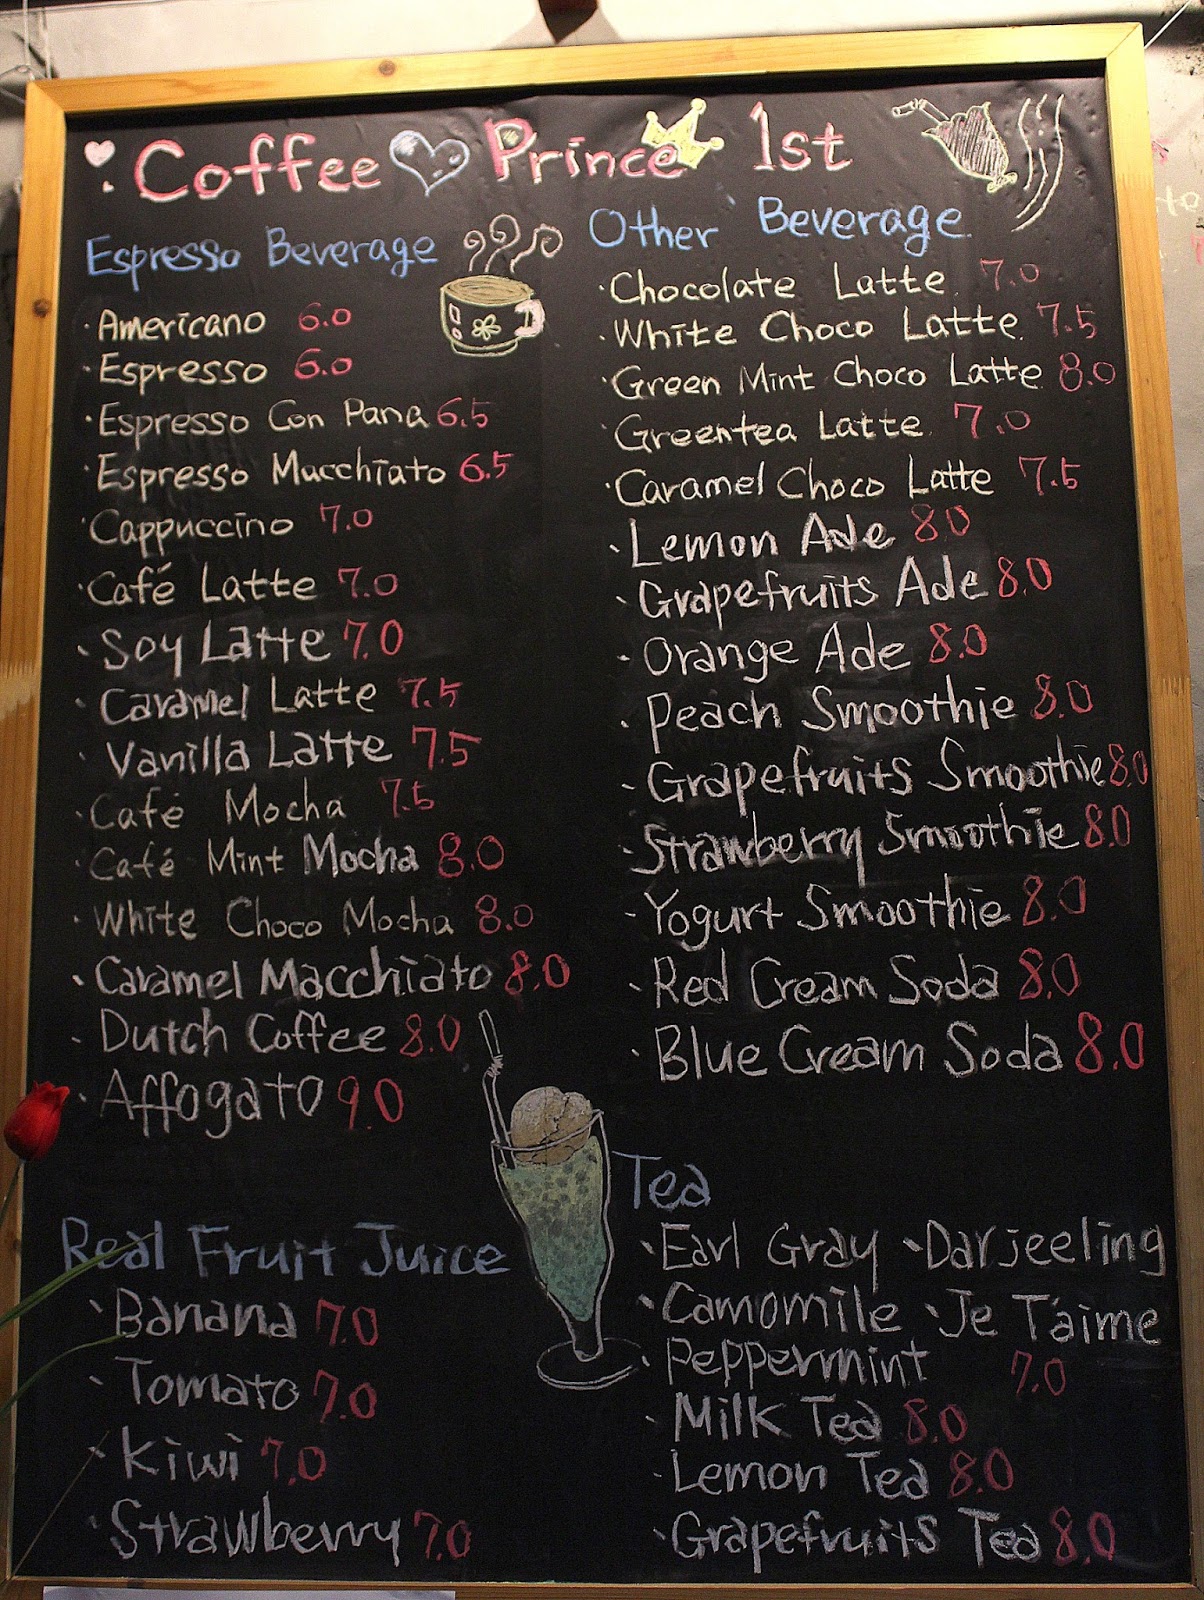 Coffee Prince 1st
Espresso Beverage
· Americano 6.0
· Espresso 6.0
· Espresso Con Pana 6.5
· Espresso Macchiato 6.5
· Cappuccino 7.0
· Café Latte 7.0
· Soy Latte 7.0
· Caramel Latte 7.5
· Vanilla Latte 7.5
· Café Mocha 7.5
· Café Mint Mocha 8.0
· White Choco Mocha 8.0
· Caramel Macchiato 8.0
· Dutch Coffee 8.0
· Affogato 9.0
Other Beverage
· Chocolate Latte 7.0
· White Choco Latte 7.5
· Green Mint Choco Latte 8.0
· Greentea Latte 7.0
· Caramel Choco Latte 7.5
· Lemon Ade 8.0
· Grapefruits Ade 8.0
· Orange Ade 8.0
· Peach Smoothie 8.0
· Grapefruits Smoothie 8.0
· Strawberry Smoothie 8.0
· Yogurt Smoothie 8.0
· Red Cream Soda 8.0
· Blue Cream Soda 8.0
Real Fruit Juice
· Banana 7.0
· Tomato 7.0
· Kiwi 7.0
· Strawberry 7.0
Tea
· Earl Gray · Darjeeling
· Camomile · Je T'aime
· Peppermint 7.0
· Milk Tea 8.0
· Lemon Tea 8.0
· Grapefruits Tea 8.0